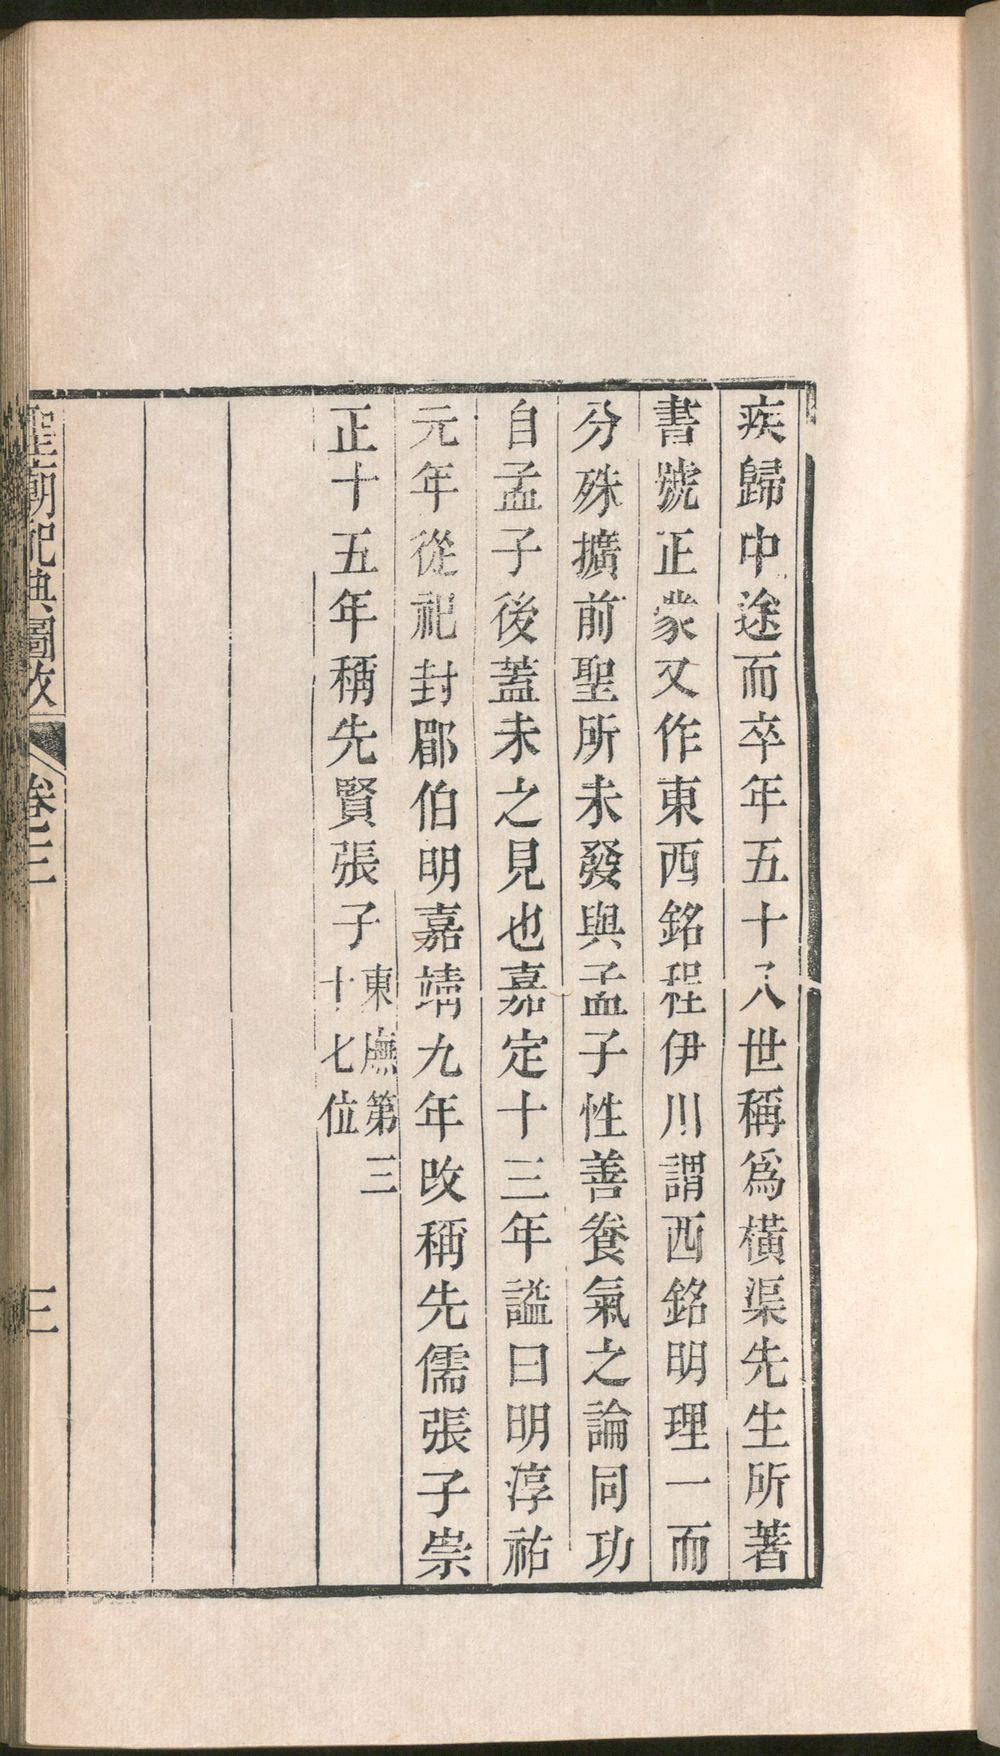 疾歸中途而卒年五十八世稱爲橫渠先生所著
書號正蒙又作東西銘程伊川謂西銘明理一而
分殊擴前聖所未發與孟子性善養氣之論同功
自孟子後蓋未之見也嘉定十三年謚曰明淳祐
元年從祀封郿伯明嘉靖九年改稱先儒張子崇
正十五年稱先賢張子
東廡第三
十七位
聖廟祀典圖攷
卷三
三